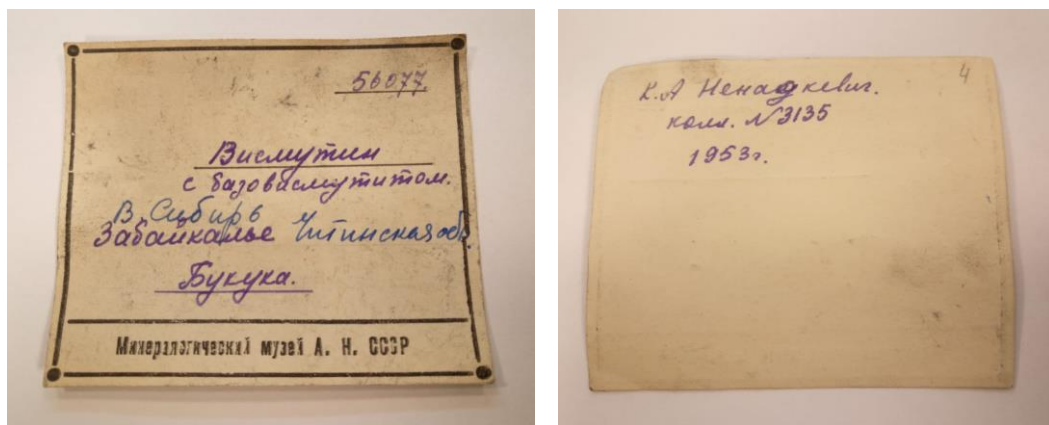 56077.
Висмутин
с базовисмутитом.
В. Сибирь
Забайкалье Читинская обл
Букука.
Минералогический музей А. Н. СССР
4
К.А Ненадкевич.
колл. №3135
1953г.